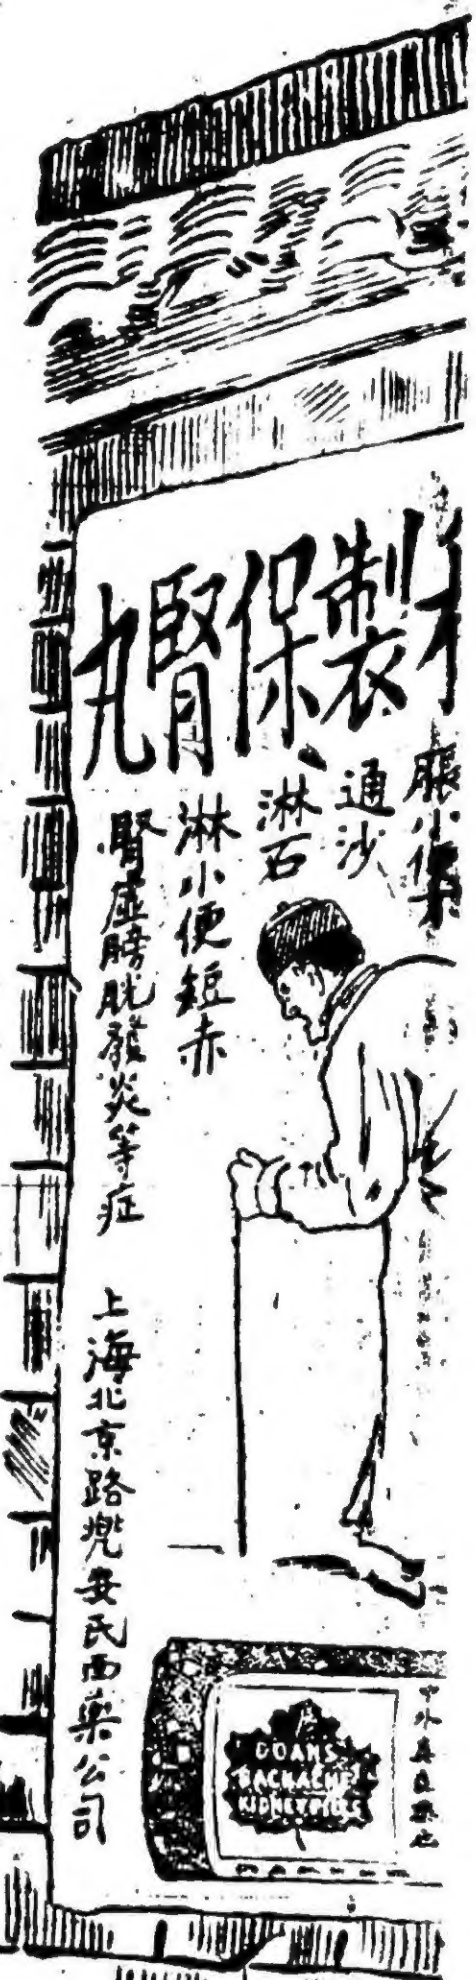 製保腎丸
脹小便
通沙
淋石
淋小便短赤
腎虛膀胱發炎等症
上海北京路兜安氏西藥公司
DOANS
BACKACHE
KIDNEY PILLS
中外